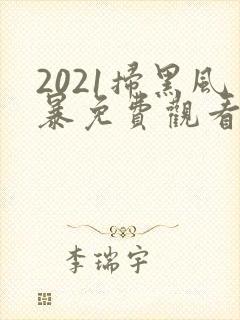 2021掃黑风
暴免費觀看
李瑞宇